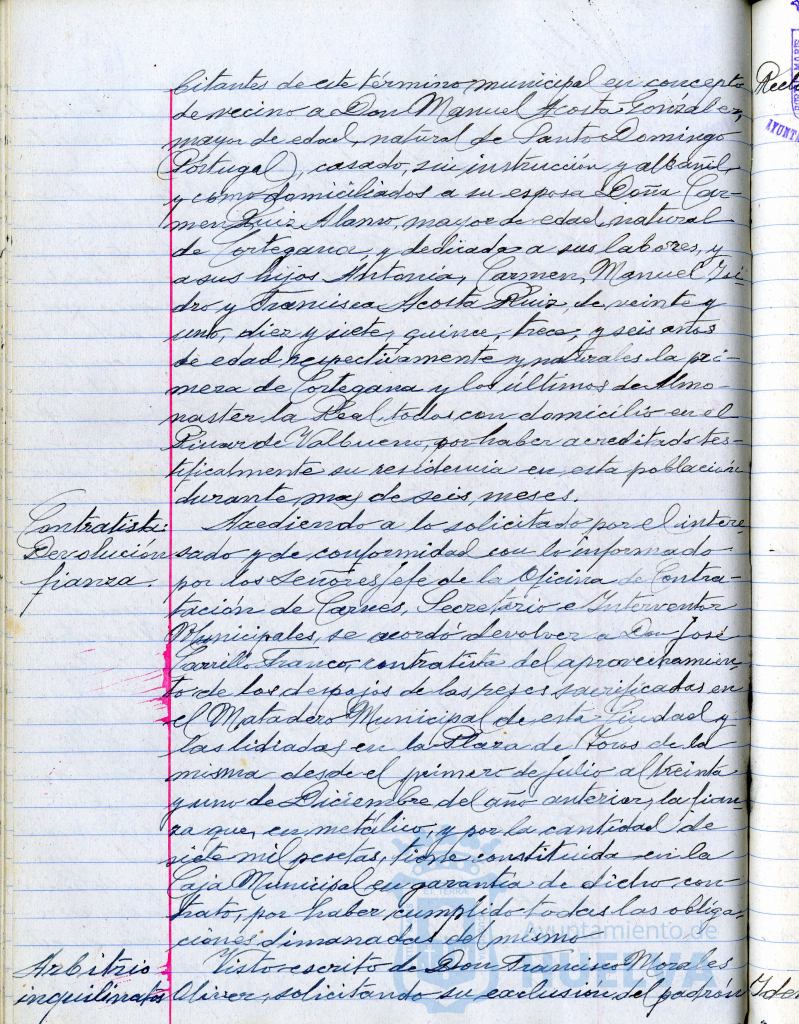 bitantes de este término municipal en concepto
de vecino a Don Manuel Acosta Gonzalez,
mayor de edad, natural de Santo Domingo
(Portugal), casado, sin instrucción y albañil,
y como domiciliados a su esposa Doña Car-
men Ruiz Alanso, mayor de edad, natural
de Cortegana, y dedicada a sus labores, y
a sus hijos Antonia, Carmen, Manuel Isi-
dro y Francisca Acosta Ruiz, de veinte y
uno, diez y siete, quince, trece, y seis años
de edad, respectivamente y naturales la pri-
mera de Cortegana y los últimos de Almo-
naster la Real, todos con domicilio en el
de Valbueno, por haber acreditado tes-
tificalmente su residencia en esta población
durante mas de seis meses.
Contratista:
Devolución
fianza.
Accediendo a lo solicitado por el intere-
sado y de conformidad con lo informado
por los señores Jefe de la Oficina de Contra-
tación de Carnes, Secretario e Interventor
Municipales, se acordó devolver a Don José
Carrillo Franco, contratista del aprovechamien-
to de los despojos de las reses sacrificadas en
el Matadero Municipal de esta Ciudad y
las lidiadas en la Plaza de Toros de la
misma desde el primero de Julio al treinta
y uno de Diciembre del año anterior, la fian-
za que, en metálico, y por la cantidad de
siete mil pesetas, tiene constituida en la
Caja Municipal en garantia de dicho con-
trato, por haber cumplido todas las obliga-
ciones dimanadas del mismo
Arbitrio
inquilinato
Visto escrito de Don Francisco Morales
Oliver, solicitando su exclusión del padrón
Ayuntamiento de
HUELVA